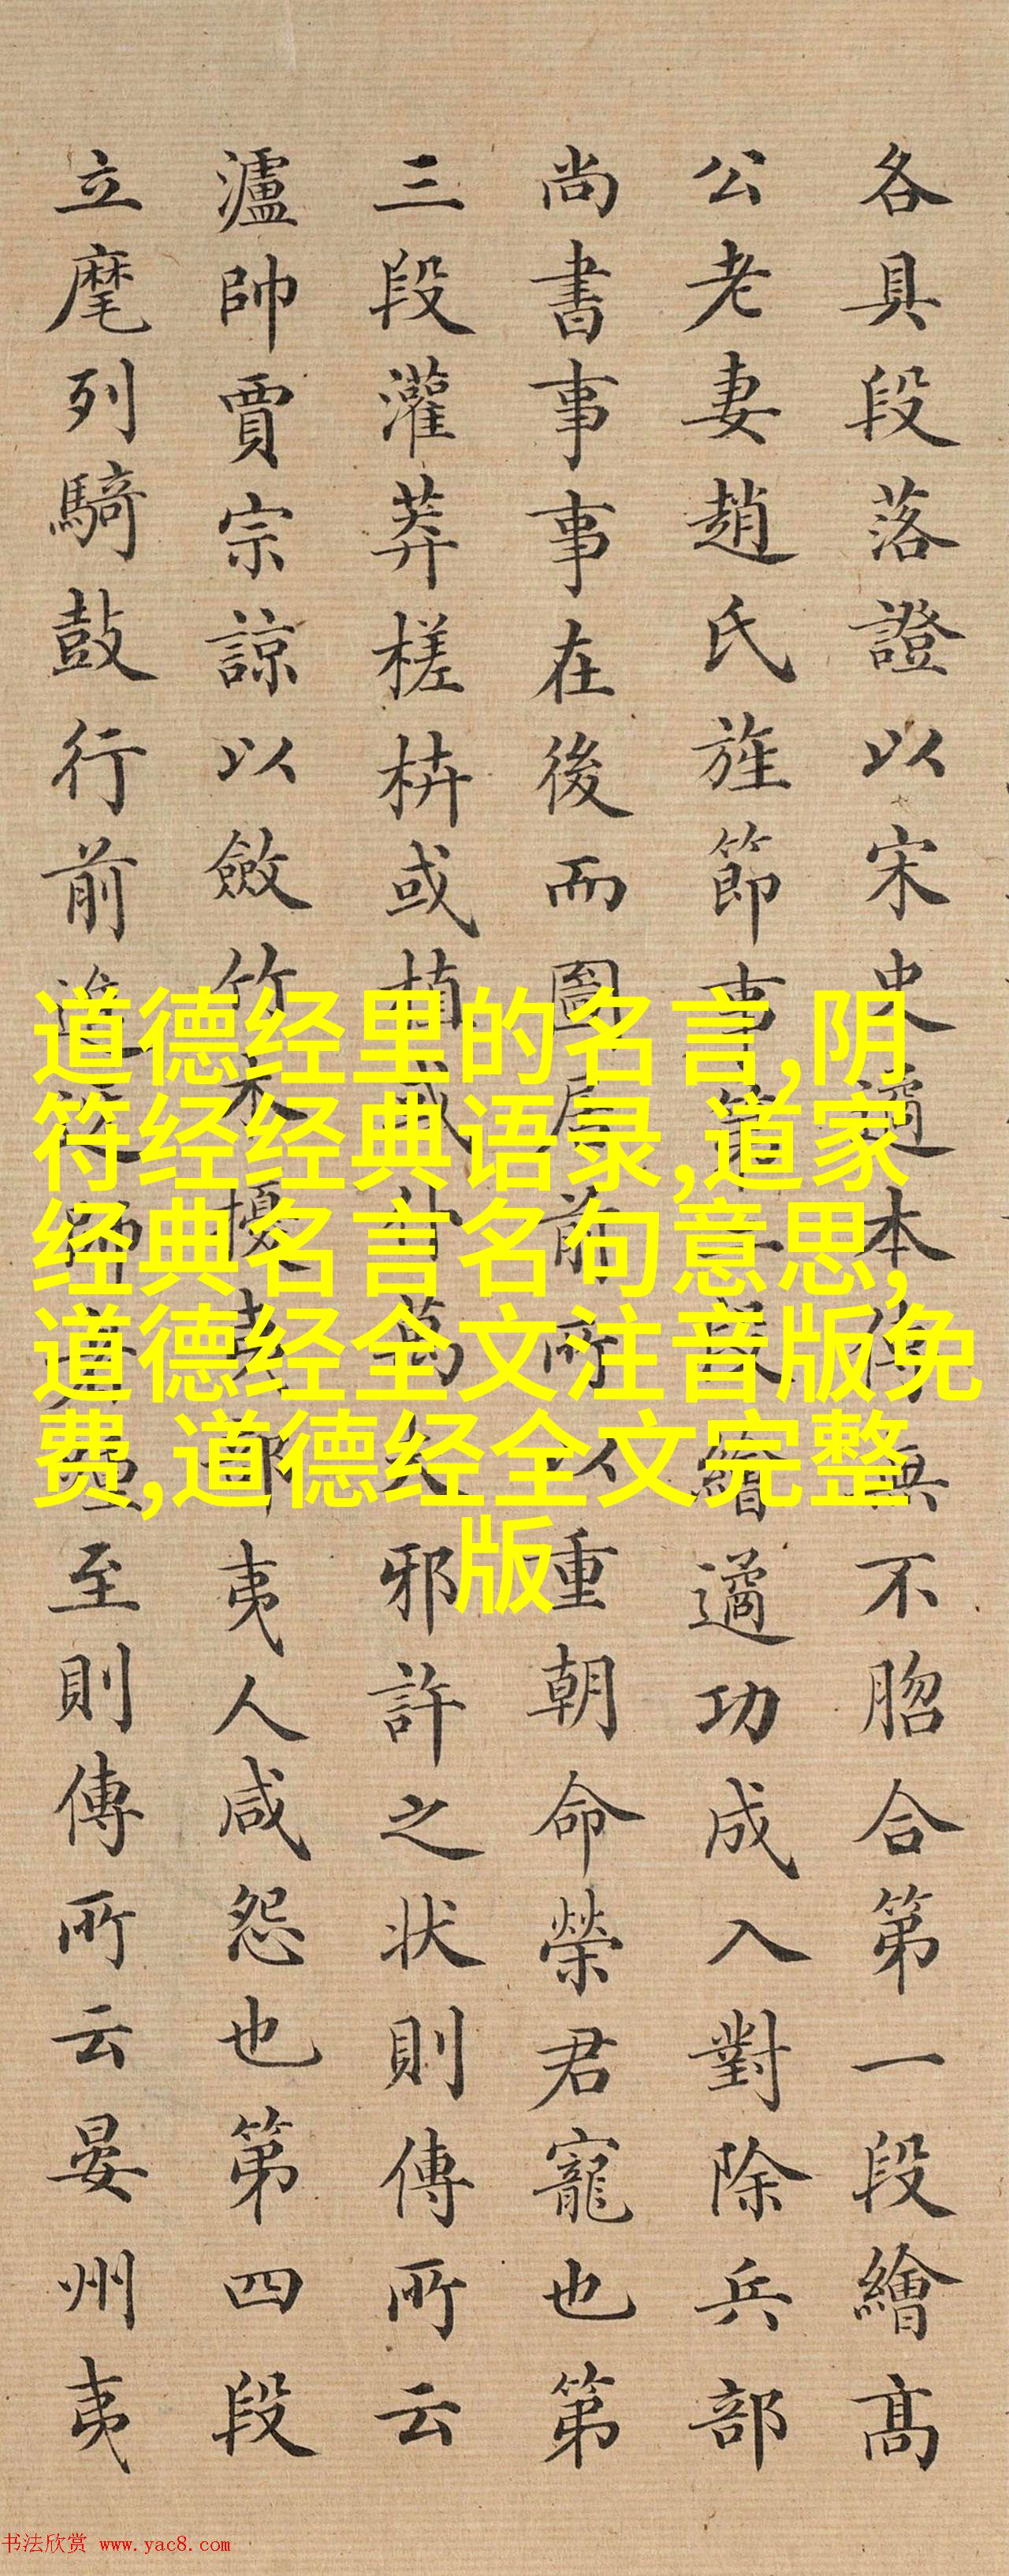 各具段落證以宋史適本傳無不脗合第一段繪高
公老妻趙氏旌節事第二段繪適功成入對除兵部
尚書事事在後而圖居前所以重朝命榮君寵也第
三段灌莽槎枿或植或仆萬夫邪許之狀則傳所云
瀘帥賈宗諒以斂竹木擾夷部夷人咸怨也第四段
立麾列騎鼓行前進
至則傳所云晏州夷
道德经里的名言,阴
符经经典语录,道家
经典名言名句意思,
道德经全文注音版免
费,道德经全文完整
版
书法欣赏 www.yac8.com